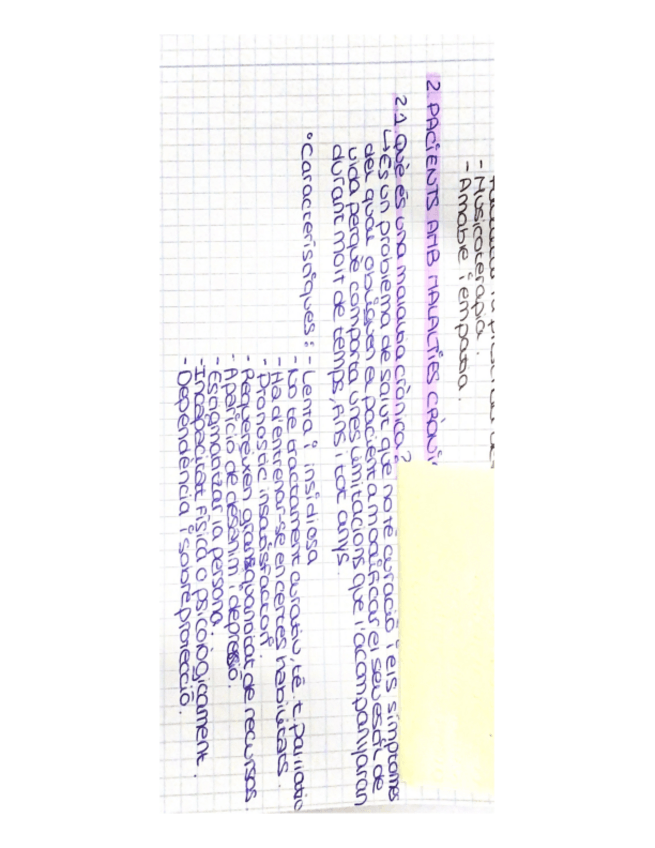 - Musicoteràpia.
- Amable i empatia.
2. PACIENTS AMB MALALTIES CRÒNI
2.1 Què és una malaltia crònica?
↳ És un problema de salut que no té curació i els símptomes
del qual obliguen el pacient a modificar el seu estil de
vida perquè comporta unes limitacions que l'acompanyaran
durant molt de temps, fins i tot anys.
• Característiques: - Lenta i insidiosa
- No té tractament curatiu, té t. pal·liatiu
- Ha d'entrenar-se en certes habilitats.
- Pronòstic insatisfactori.
- Requereixen gran quantitat de recursos.
- Aparició de desànim i depressió.
- Estigmatitzar la persona.
- Incapacitat física o psicològicament.
- Dependència i sobreprotecció.